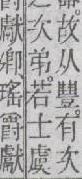 故从豐。有次
之次弟。若士虞
爵獻卿瑤爵獻